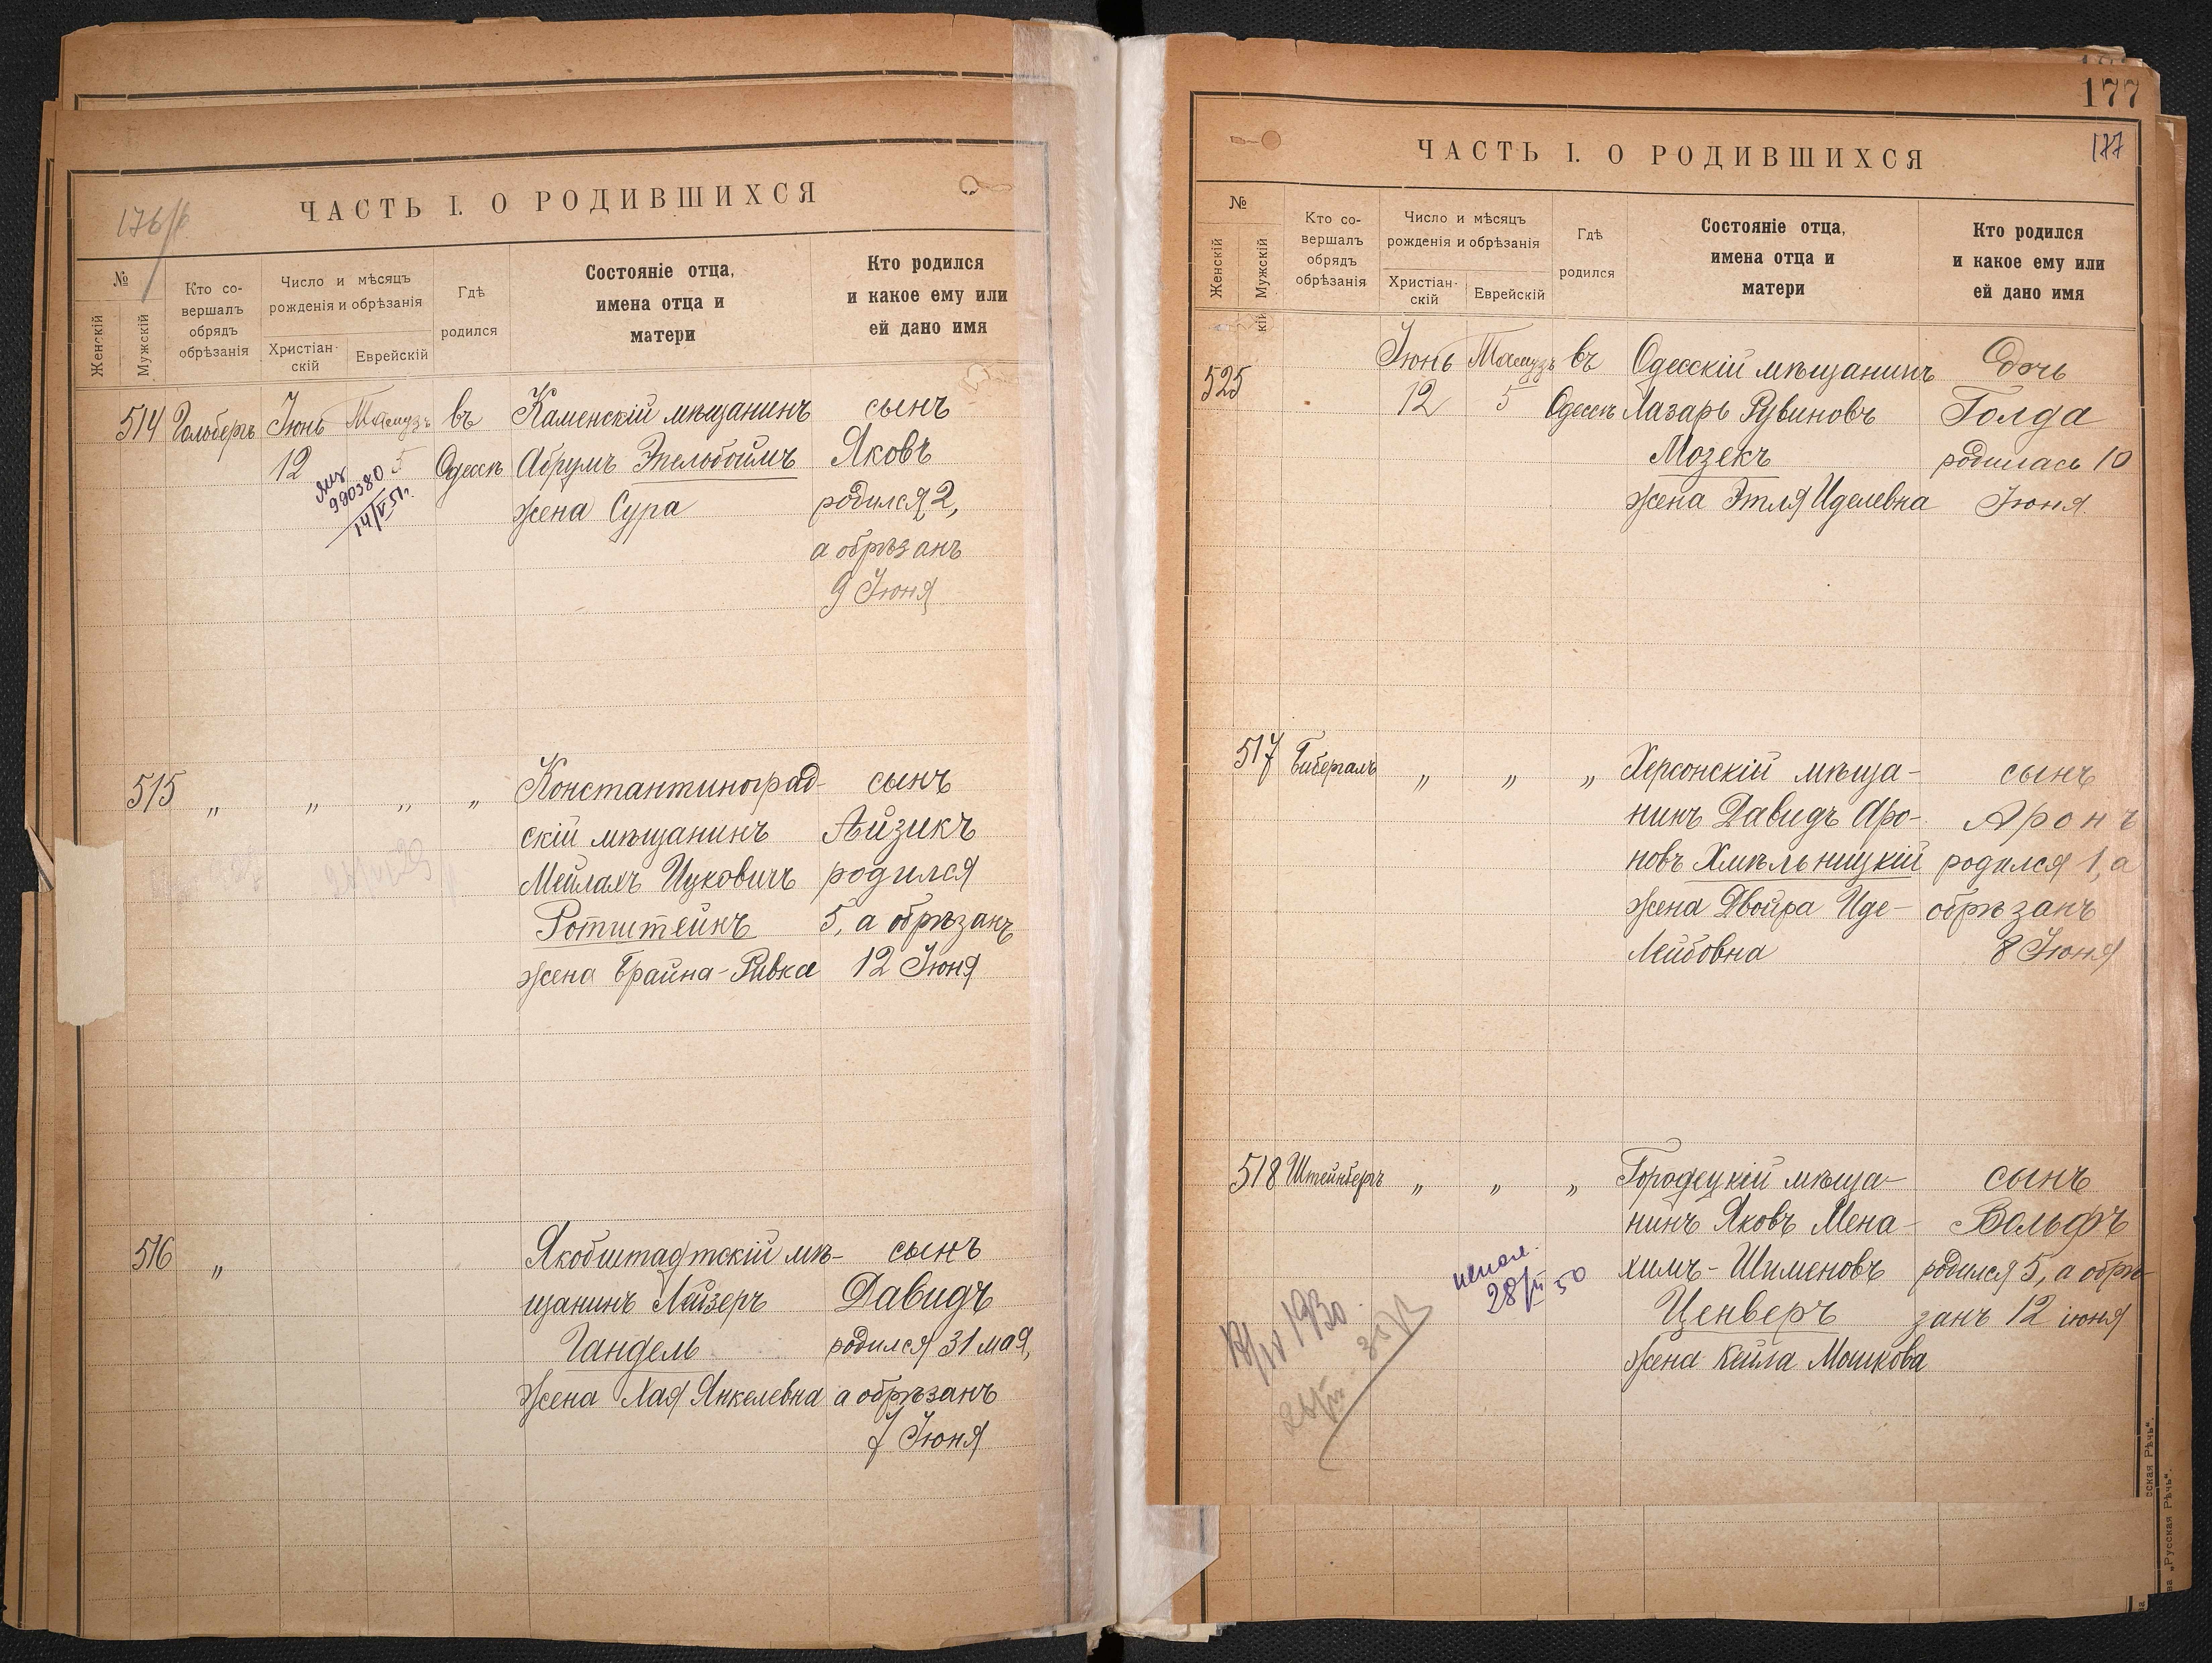 176/б
ЧАСТЬ I. О РОДИВШИХСЯ
№
Женскій
Мужскій
Кто со-
вершалъ
обрядъ
обрѣзанія
Число и мѣсяцъ
рожденія и обрѣзанія
Христіан-
скій
Еврейскій
Гдѣ
родился
Состояніе отца,
имена отца и
матери
Кто родился
и какое ему или
ей дано имя
514 Гольбергъ Іюнь Тамузъ въ Каменскій мѣщанинъ сынъ
12 5 Одессѣ Абрумъ Эпельбоймъ Яковъ
990380
14/V 51г.
жена Сура родился 2,
а обрѣзанъ
9 Іюня
515 „ „ „ „ Константиноград- сынъ
скій мѣщанинъ Айзикъ
Мейлахъ Ицковичъ родился
Ротштейнъ 5, а обрѣзанъ
жена Брайна-Ривка 12 Іюня
516 „ Якобштадтскій мѣ- сынъ
щанинъ Лейзеръ Давидъ
Гандель родился 31 мая,
жена Хая Янкелевна а обрѣзанъ
7 Іюня
177
177
ЧАСТЬ I. О РОДИВШИХСЯ
№
Женскій
Мужскій
Кто со-
вершалъ
обрядъ
обрѣзанія
Число и мѣсяцъ
рожденія и обрѣзанія
Христіан-
скій
Еврейскій
Гдѣ
родился
Состояніе отца,
имена отца и
матери
Кто родился
и какое ему или
ей дано имя
кій
525 Іюнь Тамузъ въ Одесскій мѣщанинъ Дочь
12 5 Одессѣ Лазарь Рувиновъ Голда
Мозекъ родилась 10
жена Этля Иделевна Іюня
517 Бибергалъ „ „ „ Херсонскій мѣща- сынъ
нинъ Давидъ Аро- Аронъ
новъ Хмѣльницкій родился 1, а
жена Двойра Иде- обрѣзанъ
Лейбовна 8 Іюня
518 Штейнбергъ „ „ „ Городецкій мѣща- сынъ
нинъ Яковъ Мена- Вольфъ
химъ-Шименовъ родился 5, а обрѣ-
Ценверъ занъ 12 іюня
жена Кейла Мошкова
28/II 50
1930
сская Рѣчь".
ва „Русская Рѣчь".